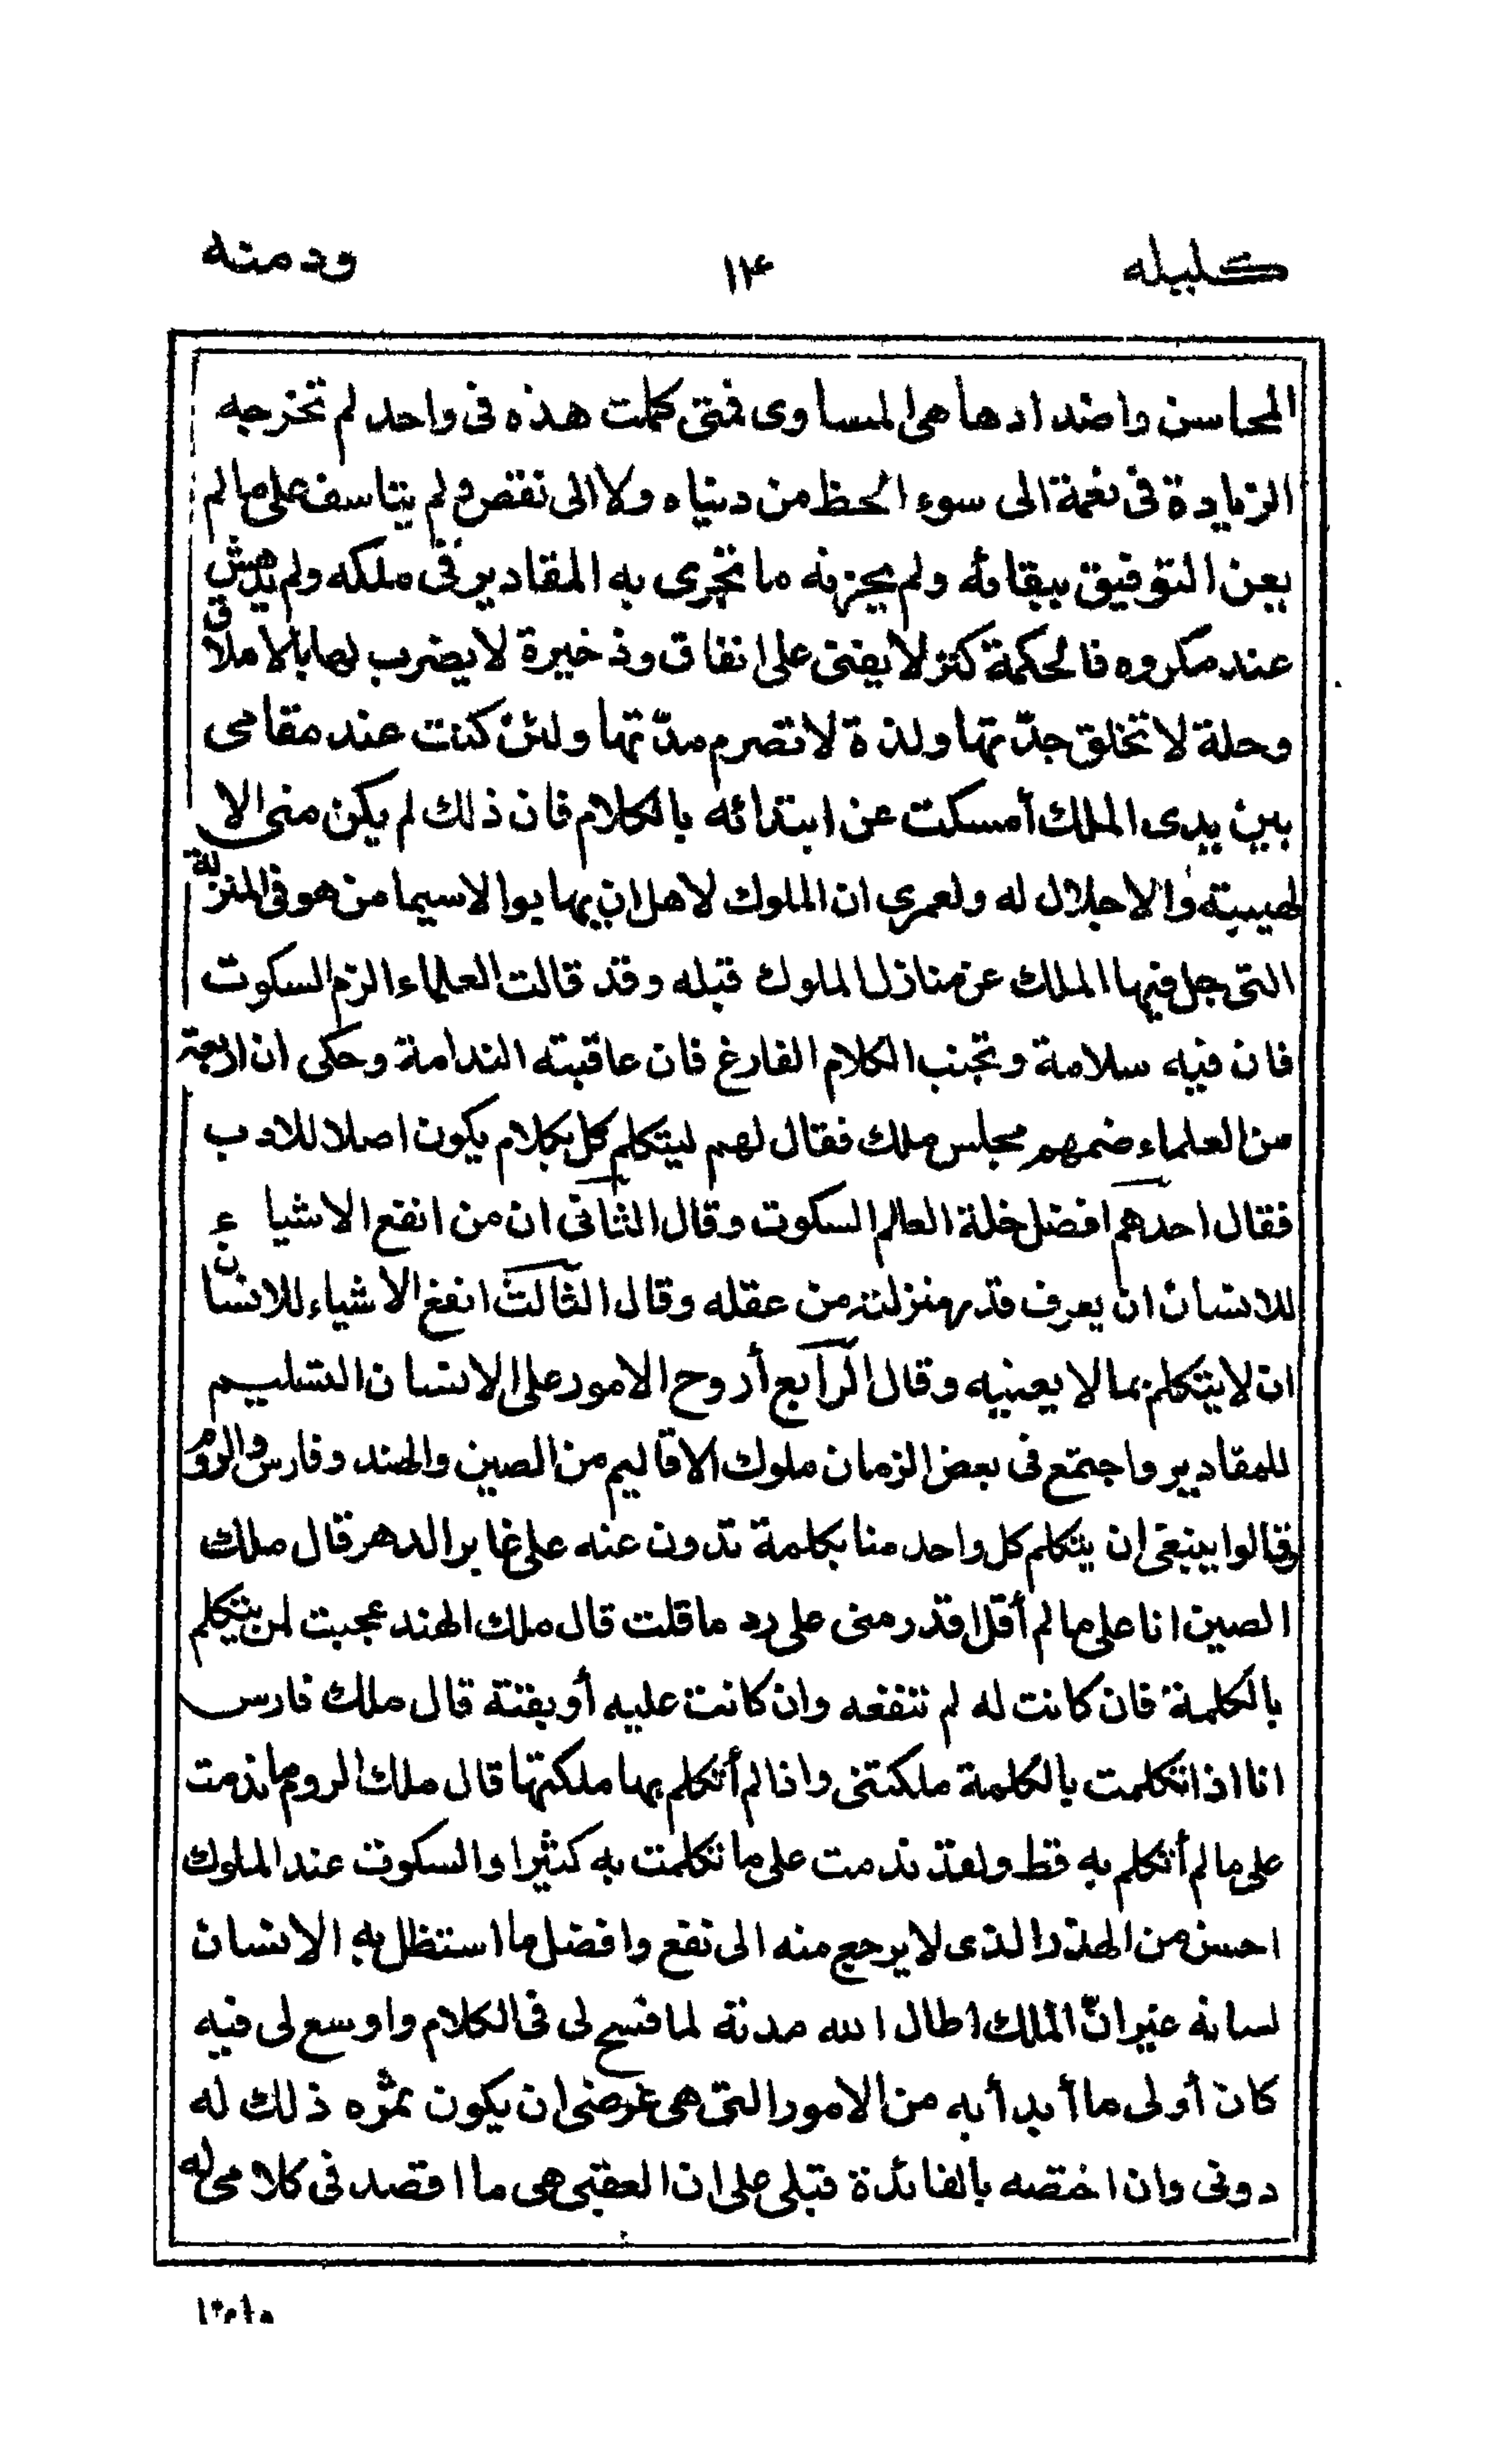 كليله ١٤ ودمنه
المحاسن واضدادها هى المساوى فمتى كملت هذه فى واحد لم تخرجه
الزيادة فى نعمة الى سوء الحظ من دنياه ولا الى نقص ولم يتاسف على ما لم
يعن التوفيق ببقائه ولم يحزنه ما تجرى به المقادير فى ملكه ولم يدهش
عند مكروه فالحكمة كنز لا يفنى على انفاق وذخيرة لا يضرب لها بالاملاق
وحلة لا تخلق جدّتها ولذة لا تصرم مدّتها ولئن كنت عند مقامى
بين يدى الملك أمسكت عن ابتدائه بالكلام فان ذلك لم يكن منى الا
لهيبته والاجلال له ولعمرى ان الملوك لاهل ان يهابوا لاسيما من هو فى المنزلة
التى جل فيها الملك عن منازل الملوك قبله وقد قالت العلماء الزم السكوت
فان فيه سلامة وتجنب الكلام الفارغ فان عاقبته الندامة وحكى ان اربعة
من العلماء ضمهم مجلس ملك فقال لهم ليتكلم كل بكلام يكون اصلا للادب
فقال احدهم افضل خلة العالم السكوت وقال الثانى ان من انفع الاشياء
للانسان ان يعرف قدر منزلته من عقله وقال الثالث انفع الاشياء للانسان
ان لا يتكلم بما لا يعنيه وقال الرابع أروح الامور على الانسان التسليم
للمقادير واجتمع فى بعض الزمان ملوك الاقاليم من الصين والهند وفارس والروم
وقالوا ينبغى ان يتكلم كل واحد منا بكلمة تدون عنه على غابر الدهر قال ملك
الصين انا على ما لم أقل اقدر منى على رد ما قلت قال ملك الهند عجبت لمن يتكلم
بالكلمة فان كانت له لم تنفعه وان كانت عليه أوبقته قال ملك فارس
انا اذا تكلمت بالكلمة ملكتنى واذا لم أتكلم بها ملكتها قال ملك الروم ما ندمت
على ما لم أتكلم به قط ولقد ندمت على ما تكلمت به كثيرا والسكوت عند الملوك
احسن من الهذر الذى لا يرجع منه الى نفع وافضل ما استظل به الانسان
لسانه غير انّ الملك اطال الله مدته لما فسح لى فى الكلام واوسع لى فيه
كان أولى ما أبدأ به من الامور التى هى غرضى ان يكون ثمره ذلك له
دونى وان اختصه بالفائدة قبلى على ان العقبى هى ما اقصد فى كلامى له